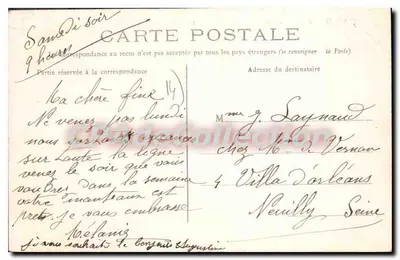 Samedi soir
9 heures
CARTE POSTALE
correspondance au recto n'est pas acceptée par tous les pays étrangers (se renseigner à la Poste)
Partie réservée à la correspondance
Adresse du destinataire
Ma chère fine
14
Ne venez pas lundi
nous
sur toute la ligne
venez le soir que vous
dans la semaine
votre manteaux est
pret. je vous embrasse
Melanie
je vous souhaite le bonjour Augustine
Mme g. Laynaud
chez Mme de Vernon
4 Villa d'orléans
Neuilly Seine